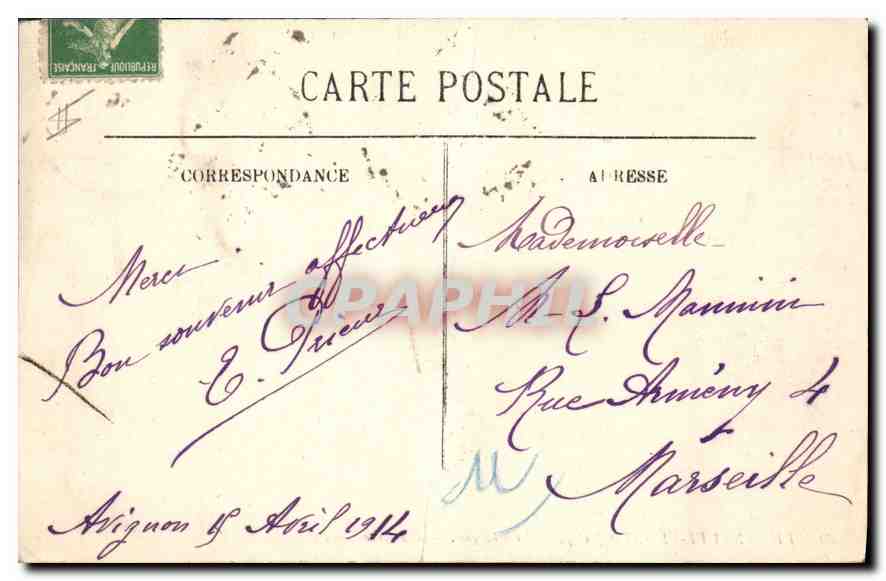 REPUBLIQUE FRANÇAISE
CARTE POSTALE
CORRESPONDANCE
ADRESSE
Merci
Bon souvenir affectueux
E. Prieur
Avignon 15 Avril 1914
Mademoiselle
M. L. Mannini
Rue Armény 4
Marseille
M
CPAPHIL